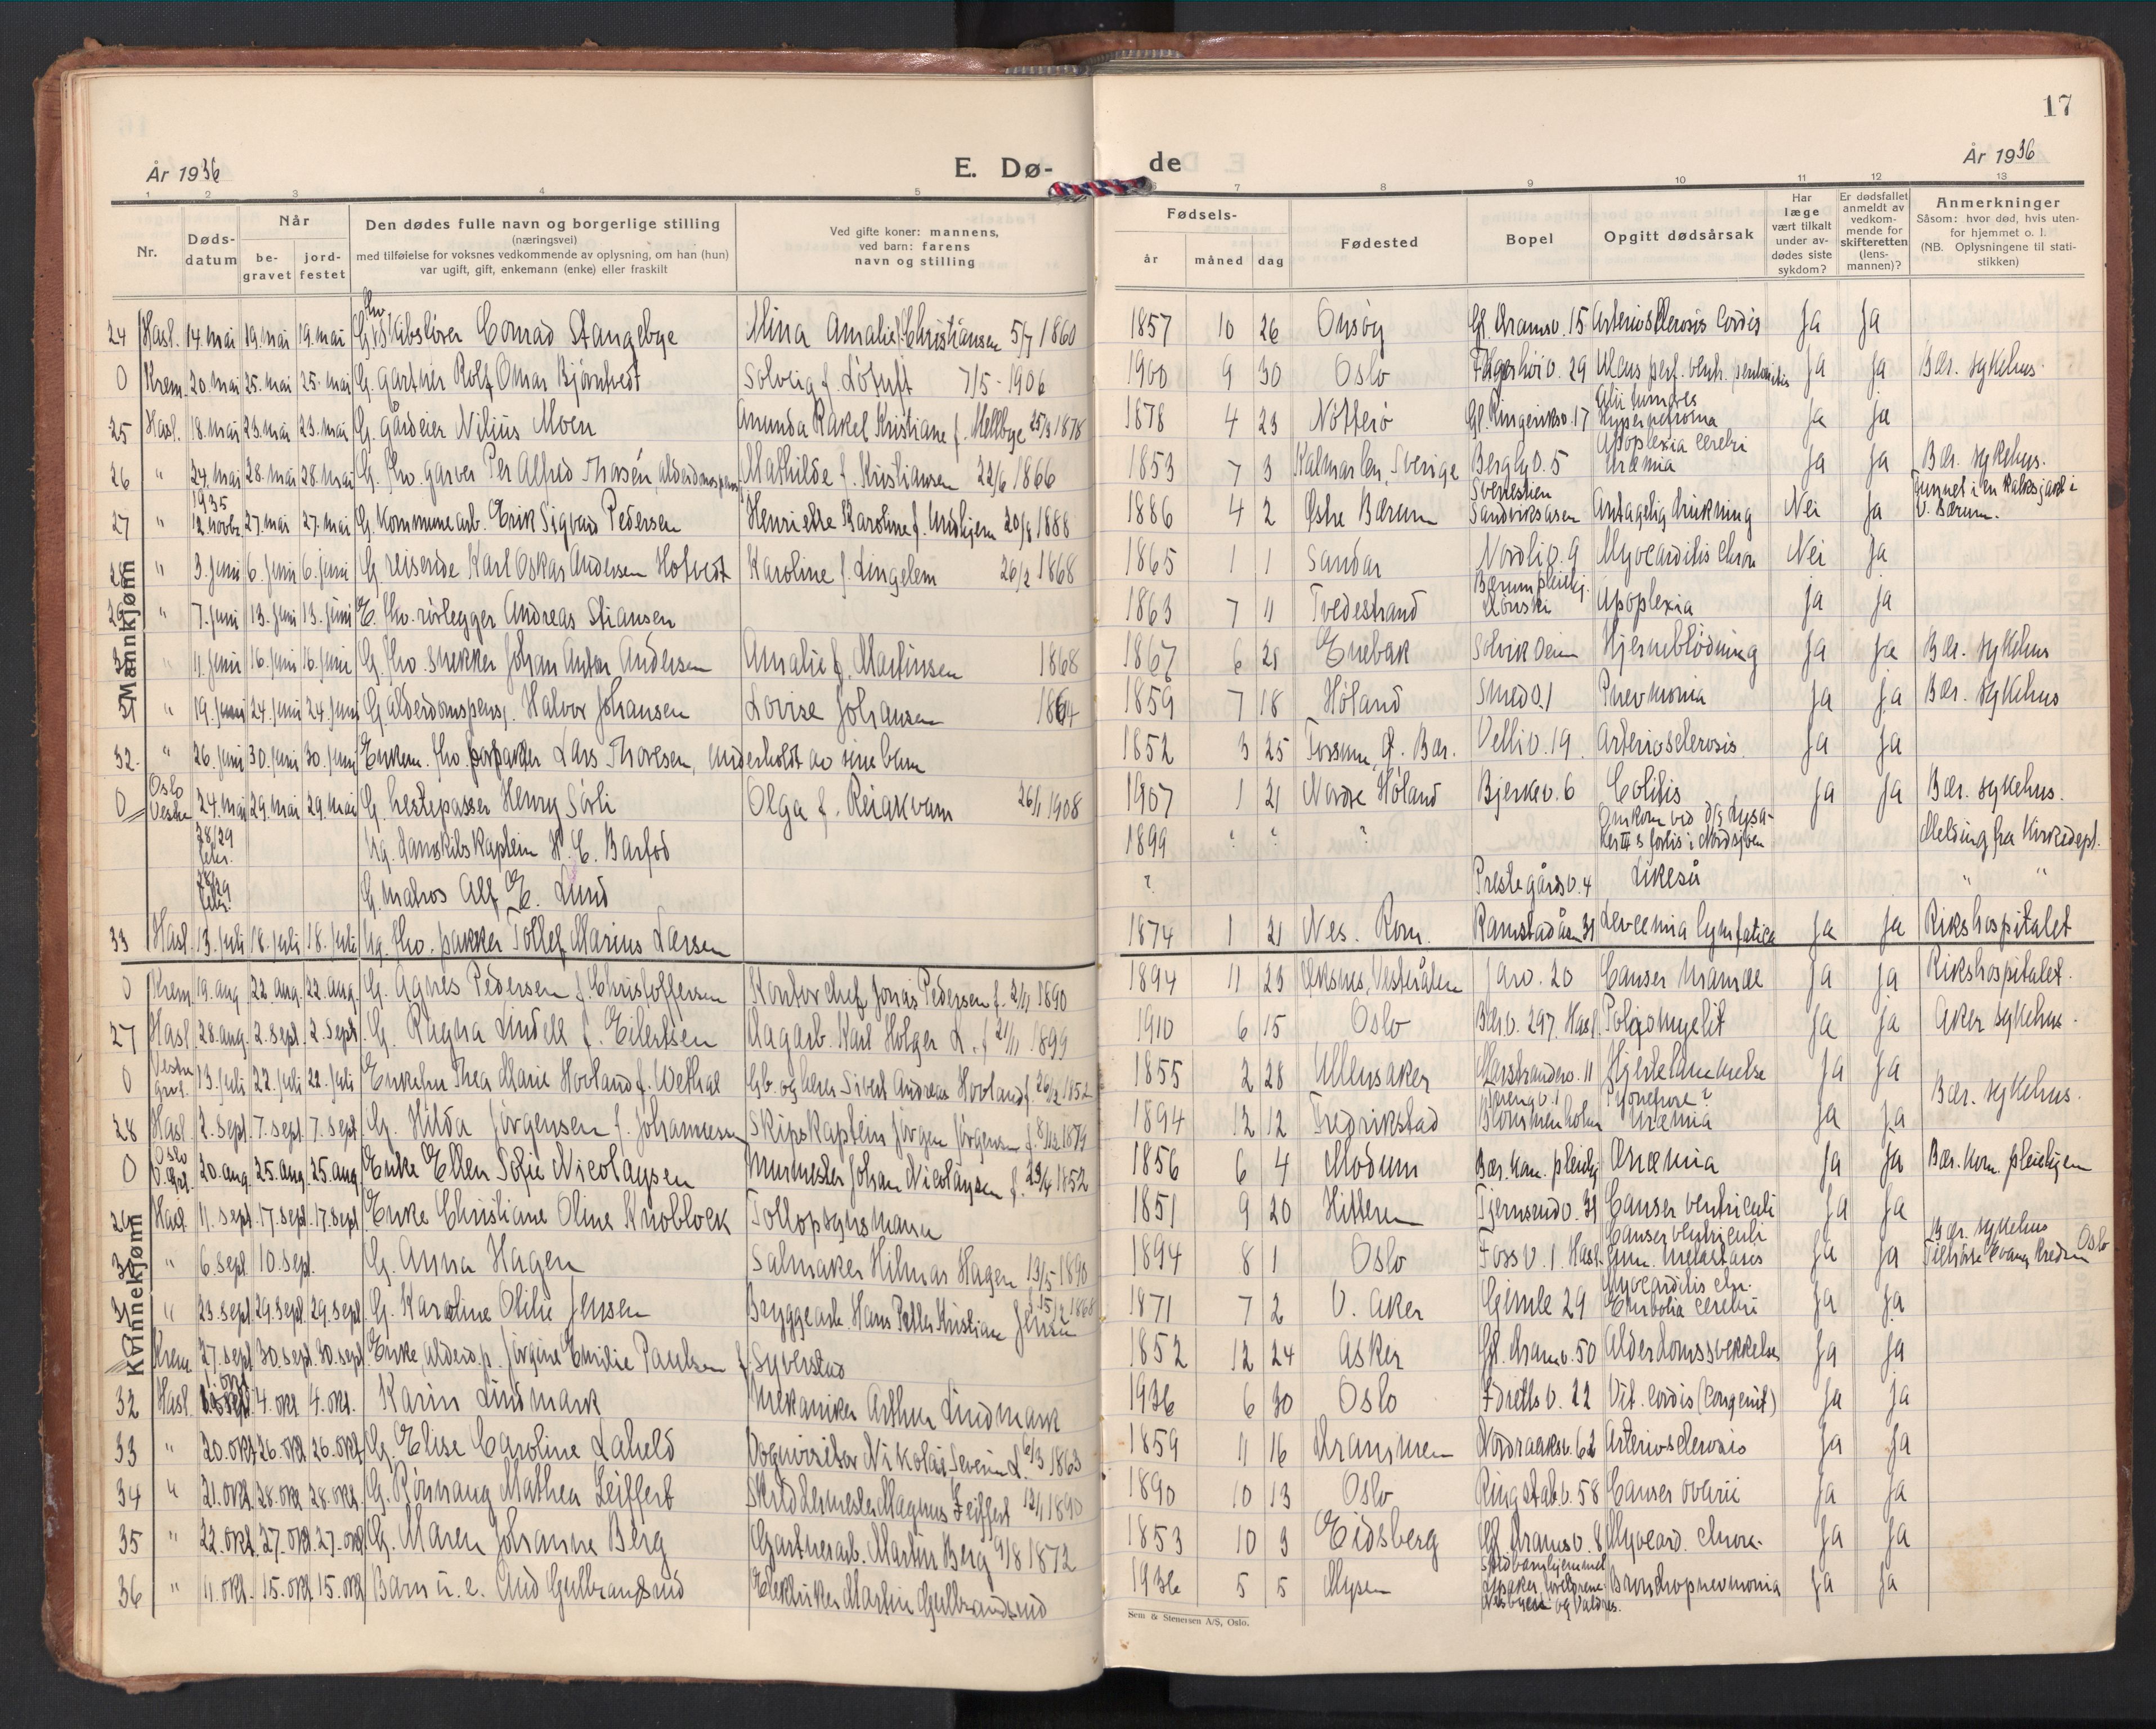 17
År 1936
E. Dø-
de
År 1936
1 2 3 4 5 6 7 8 9 10 11 12 13
Nr.
Døds-
datum
Når
be-
gravet
jord-
festet
Den dødes fulle navn og borgerlige stilling
(næringsvei)
med tilføielse for voksnes vedkommende av oplysning, om han (hun)
var ugift, gift, enkemann (enke) eller fraskilt
Ved gifte koner: mannens,
ved barn: farens
navn og stilling
Fødsels-
år måned dag
Fødested
Bopel
Opgitt dødsårsak
Har
læge
vært tilkalt
under av-
dødes siste
sykdom?
Er dødsfallet
anmeldt av
vedkom-
mende for
skifteretten
(lens-
mannen)?
Anmerkninger
Såsom: hvor død, hvis uten-
for hjemmet o. l.
(NB. Oplysningene til stati-
stikken)
Mannkjønn
24 Hasl. 14. mai 19. mai 19. mai G. fhv. Conrad Stangebye Mina Amalie f. Christiansen 5/7 1860 1857 10 26 Onsøy Gl. Dramsv. 15 Arteriosklerosis Cordis Ja Ja
0 Krem. 20. mai 25. mai 25. mai G. gartner Rolf Omar Bjørntvedt Solveig f. Løtuft 7/5 - 1906 1900 9 30 Oslo Fagerhøiv. 29 Ulcus perf. ventr. peritonitis Ja Ja Bær. sykehus.
25 Hasl. 18. mai 23. mai 23. mai G. gårdeier Nilius Moen Amunda Rakel Kristiane f. Mellbye 25/3 1878 1878 4 23 Nøtterø Gl. Ringeriksv. 17 Hypernefroma Ja Ja
26 " 24. mai 28. mai 28. mai G. fhv. garver Per Alfred Thorsén, alderdomspens. Mathilde f. Kristiansen 22/6 1866 1853 7 3 Kalmar len, Sverige Berglyv. 5 Apoplexia cerebri Uræmia Ja Ja Bær. sykehus.
27 " 1935 12 novbr. 27. mai 27. mai G. kommunearb. Erik Sigvard Pedersen Henriette Karoline f. Undhjem 20/8 1888 1886 4 2 Østre Bærum Svenestien Sandviksåsen Antagelig drukning Nei Ja Funnet i en kalksjakt i V. Bærum.
28 " 3. juni 6. juni 6. juni G. reisende Karl Oskar Andersen Hotvedt Karoline f. Lingelem 26/2 1868 1865 1 1 Sandar Nordliv. 9 Myocarditis chron Nei Ja
29 " 7. juni 13. juni 13. juni E. fhv. rørlegger Andreas Stiansen 1863 7 11 Tvedestrand Bærum pleiehj. Dønski Apoplexia Ja Ja
" 11. juni 16. juni 16. juni G. fhv. snekker Johan Anton Andersen Amalie f. Martinsen 1868 1867 6 21 Enebak Solvikveien Hjerneblødning Ja Ja Bær. sykehus
31 " 19. juni 24. juni 24. juni G. alderdomspensj. Halvor Johansen Lovise Johansen 1864 1859 7 18 Høland Smedv. 1 Pnevmonia Ja Ja Bær. sykehus
32. " 26. juni 30. juni 30. juni Enkem. fhv. forpakter Lars Thoresen, underholdt av sine barn 1852 3 25 Fossum, Ø. Bær. Velliv. 19. Arteriosclerosis. Ja Ja
0 Oslo Vestre 24. mai 29. mai 29. mai G. hestepasser Henry Sørli Olga f. Reiakvam 26/1 1908 1907 1 21 Nordre Høland Bjerkev. 6 Colitis Ja Ja Bær. sykehus.
28/29 febr. Ug. dampskibskaptein H. C. Barfod 1899 " " " Omkom ved D/S Lysa-
ker III s forlis i Nordsjøen Melding fra Kirkedept.
28/29 febr. G. matros Alf E. Lund ? Prestegårdsv. 4 Likeså " "
33 Hasl. 13. juli 18. juli 18. juli Ug. fhv. pakker Tollef Marius Larsen 1874 1 21 Nes. Rom. Ramstadåsen 31 Levcemia lymfatica Ja Ja Rikshospitalet
Kvinnekjønn
0 Krem. 19. aug 22 aug. 22 aug. G. Agnes Pedersen f. Christoffersen Kontorchef Jonas Pedersen f. 2/11 1890 1894 11 23 Øksnes, Vesterålen Jarv. 20 Cancer mamae Ja Ja Rikshospitalet.
27 Hasl. 28. aug. 2. sept. 2. sept. G. Ragna Lindell f. Eilertsen Lagarb. Karl Holger L. f. 21/11 1899 1910 6 15 Oslo Bærv. 297. Hasl. Poliomyelit Ja Ja Aker sykehus.
0 Vestre Grvl. 13. juli 22. juli 22. juli Enkefru Thea Marie Hovland f. Wethal Gb. og lærer Sivert Andreas Hovland f. 26/2 1852 1855 2 28 Ullensaker Marstranderv. 11 Hjertelammelse Ja Ja
28 Hasl. 2. sept. 7. sept. 7. sept. G. Hilda Jørgensen f. Johannesen Skipskaptein Jørgen Jørgensen f. 8/12 1879 1894 12 12 Fredrikstad Blommenholm Pyonefrose? Uræmia Ja Ja Bær. sykehus.
0 Oslo V. Gr. 20. aug. 25. aug. 25. aug. Enke Ellen Sofie Nicolaysen Murmester Johan Nicolaysen f. 23/4 1852 1856 6 4 Modum Bær. kom. pleiehj Anæmia Ja Ja Bær. kom. pleiehjem
29 Hasl. 11. sept. 17. sept. 17. sept Enke Christiane Oline Knoblock Tollopsynsmann 1851 9 20 Hitteren Tjernsrudv. 31 Canser ventriculi Ja Ja
30 " 6. sept 10. sept. G. Anna Hagen Salmaker Hilmar Hagen 13/5 1890 1894 8 1 Oslo Fossv. 1. Hasl. Canser ventriculi cum metastases Ja Ja Bær. sykehus Tilhørte Evang. kredsen Oslo
31 " 23. sept 29. sept 29. sept G. Karoline Otilie Jensen Bryggearb. Hans Petter Kristian Jensen 15/2 1868 1871 7 2 V. Aker Gimle 29 Myocarditis chr. Embolia cerebri Ja Ja
Krem 27. sept 30. sept. 30. sept Enke alderd.p. Jørgine Emilie Paulsen f. Syverstad 1852 12 24 Asker Gl. Dramsv. 50 Alderdomssvekkelse Ja Ja
32 Hasl. 1. okt 4. okt 4. okt. Karin Lindmark Mekaniker Arthur Lindmark 1936 6 30 Oslo Idrettsv. 22 Vit. cordis (congenit) Ja Ja
33 " 20. okt 26. okt 26. okt G. Elise Caroline Laheld Vognvisitør Nikolai Severin L. 6/3 1863 1859 11 16 Drammen Nordraaksv. 62 Arteriosclerosis Ja Ja
34 " 21. okt. 28. okt 28. okt. G. Rønnaug Mathea Zeiffert Skreddermester Magnus Zeiffert 12/1 1890 1890 10 13 Oslo Ringstabv. 58 Canser ovarii Ja Ja
35 " 22. okt. 27. okt. 27. okt. G. Maren Johanne Berg Gartnerarb. Martin Berg 9/8 1872 1853 10 3 Eidsberg Gl. Dramsv. 8 Myocard. chron. Ja Ja
36 " 11. okt. 15. okt 15. okt Barn u. e. Aud Gulbrandsrud Elektriker Martin Gulbrandsrud 1936 5 5 Mysen Spedbarnhjemmet Lysaker, foreldrene Nesbyen og Valdres. Bronchopnevmonia Ja Ja
Sem & Stenersen A/S, Oslo.